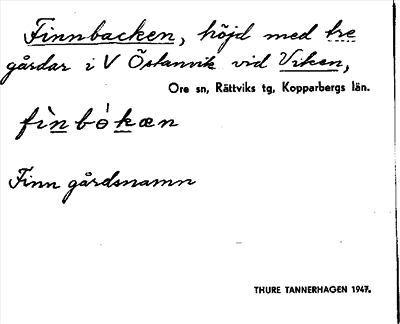 Finnbacken, höjd med tre
gårdar i V Östanvik vid Viken,
Ore sn, Rättviks tg, Kopparbergs län.
fìnbókæn
Finn gårdsnamn
THURE TANNERHAGEN 1947.